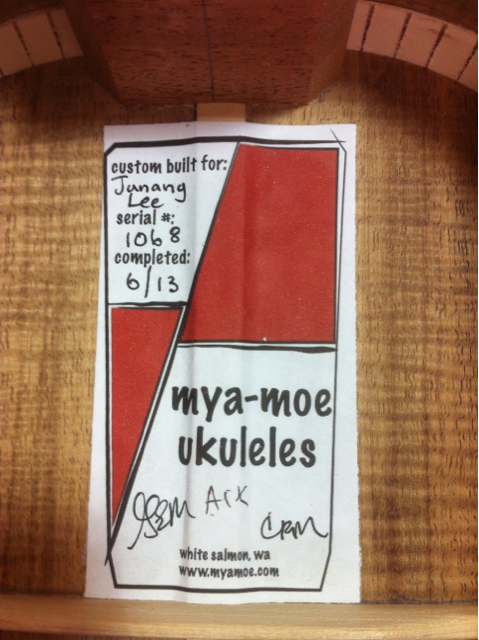 custom built for:
Junang
Lee
serial #:
1068
completed:
6/13
mya-moe
ukuleles
Ark
CRM
White salmon, wa
www.myamoe.com